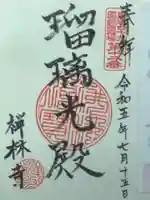 奉拝
令和五年七月十五日
瑠璃光殿
禅林寺